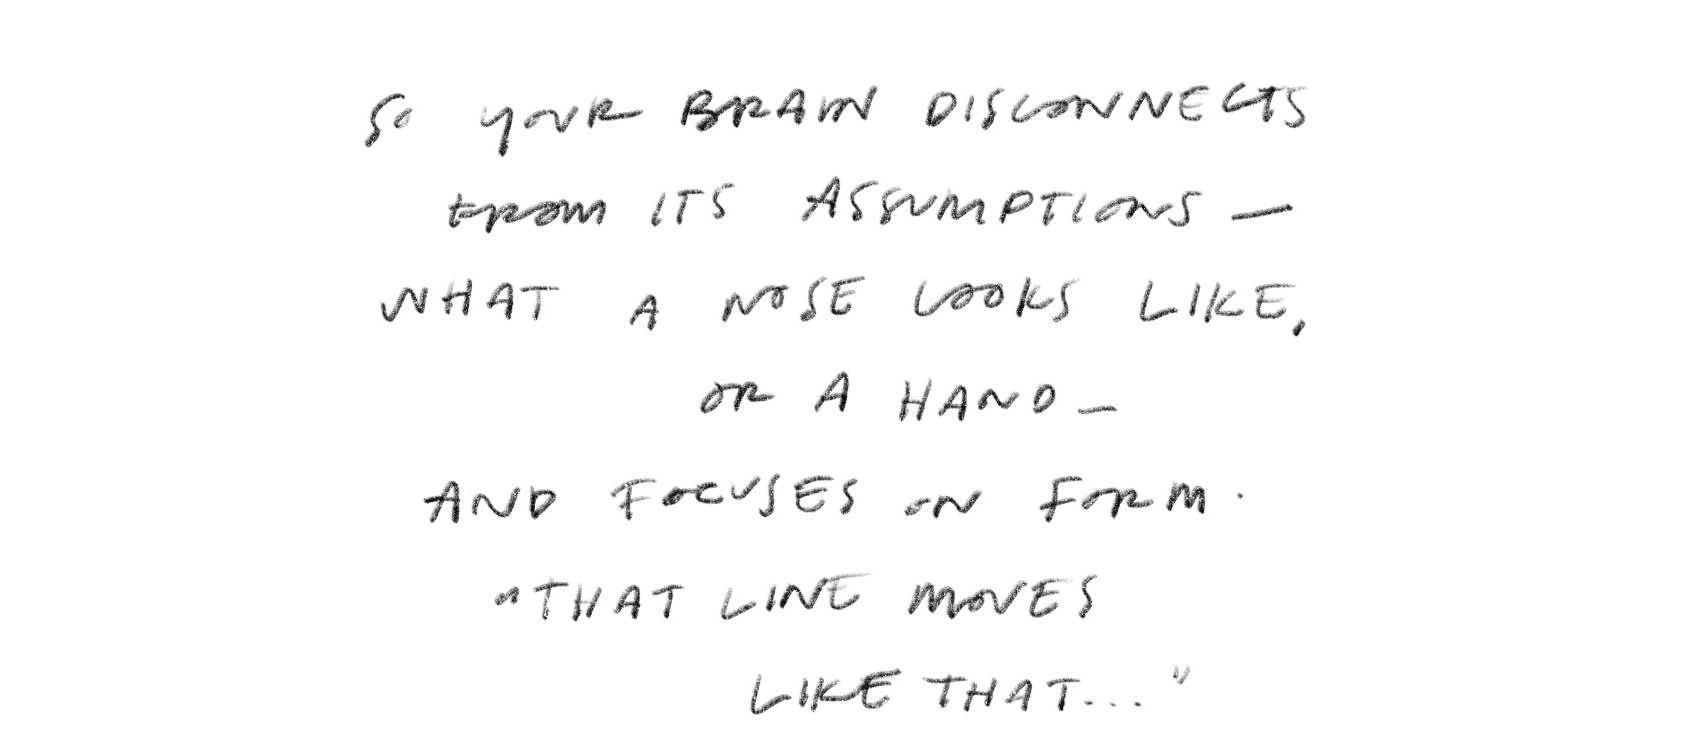 SO YOUR BRAIN DISCONNECTS
FROM ITS ASSUMPTIONS —
WHAT A NOSE LOOKS LIKE,
OR A HAND —
AND FOCUSES ON FORM.
"THAT LINE MOVES
LIKE THAT..."